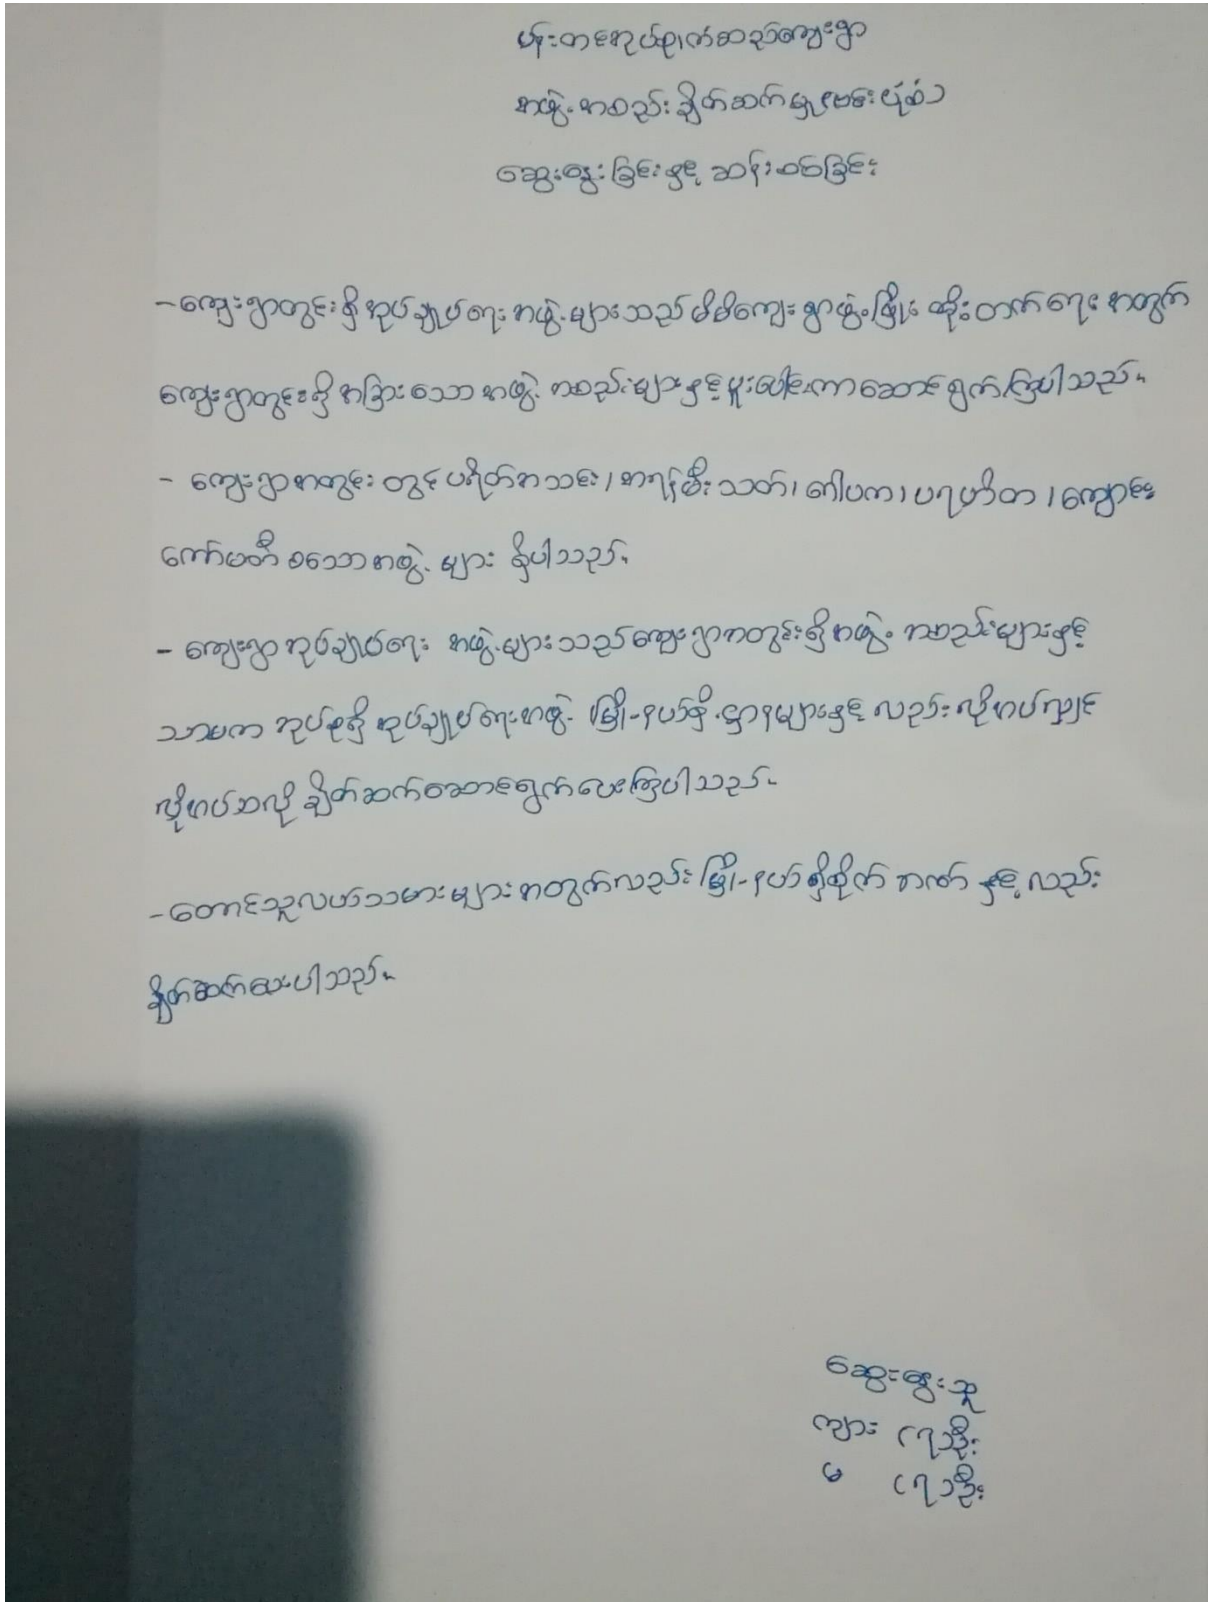 ပန်းတင်အုပ်စု၊ ကံဆည်ကျေးရွာ
အဖွဲ့အစည်းချိတ်ဆက်မှုဗင်းပုံစံ
ဆွေးနွေးခြင်းနှင့် ဆန်းစစ်ခြင်း
- ကျေးရွာတွင်းရှိ အုပ်ချုပ်ရေး အဖွဲ့များသည် မိမိကျေးရွာဖွံ့ဖြိုး တိုးတက်ရေး အတွက်
ကျေးရွာတွင်းရှိ အခြားသော အဖွဲ့ အစည်းများနှင့် ပူးပေါင်းကာ ဆောင်ရွက်ကြပါသည်။
- ကျေးရွာအတွင်း တွင် ပရိတ်အသင်း၊ အရန်မီးသတ်၊ ဂေါပက၊ ပရဟိတ၊ ကျောင်း
ကော်မတီ စသော အဖွဲ့ များ ရှိပါသည်။
- ကျေးရွာ အုပ်ချုပ်ရေး အဖွဲ့များသည် ကျေးရွာအတွင်းရှိ အဖွဲ့ အစည်းများနှင့်
သာမက အုပ်စုရှိ အုပ်ချုပ်ရေးအဖွဲ့ မြို့နယ်ရှိ ဌာနများနှင့် လည်း လိုအပ်လျှင်
လိုအပ်သလို ချိတ်ဆက်ဆောင်ရွက်ပေးကြပါသည်။
- တောင်သူလယ်သမားများ အတွက်လည်း မြို့နယ်ရှိ စိုက် ဘဏ် နှင့် လည်း
ချိတ်ဆက်ပေးပါသည်။
ဆွေးနွေးသူ
ကျား (၇)ဦး
မ (၇)ဦး